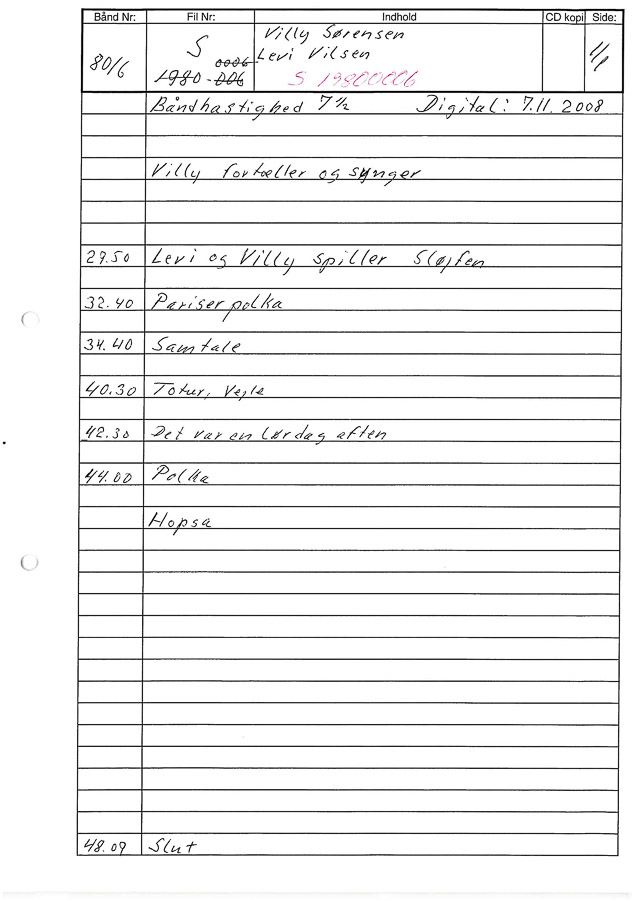 Bånd Nr: Fil Nr: Indhold CD kopi Side:
80/6 S 1980-006 0006 Villy Sørensen 1/1
Levi Vilsen
S 19800006
Båndhastighed 7 1/2 Digital: 7.11.2008
Villy fortæller og synger
29.50 Levi og Villy spiller Sløjfen
32.40 Pariserpolka
34.40 Samtale
40.30 Totur, Vejle
42.30 Det var en Lørdag aften
44.00 Polka
Hopsa
48.09 Slut